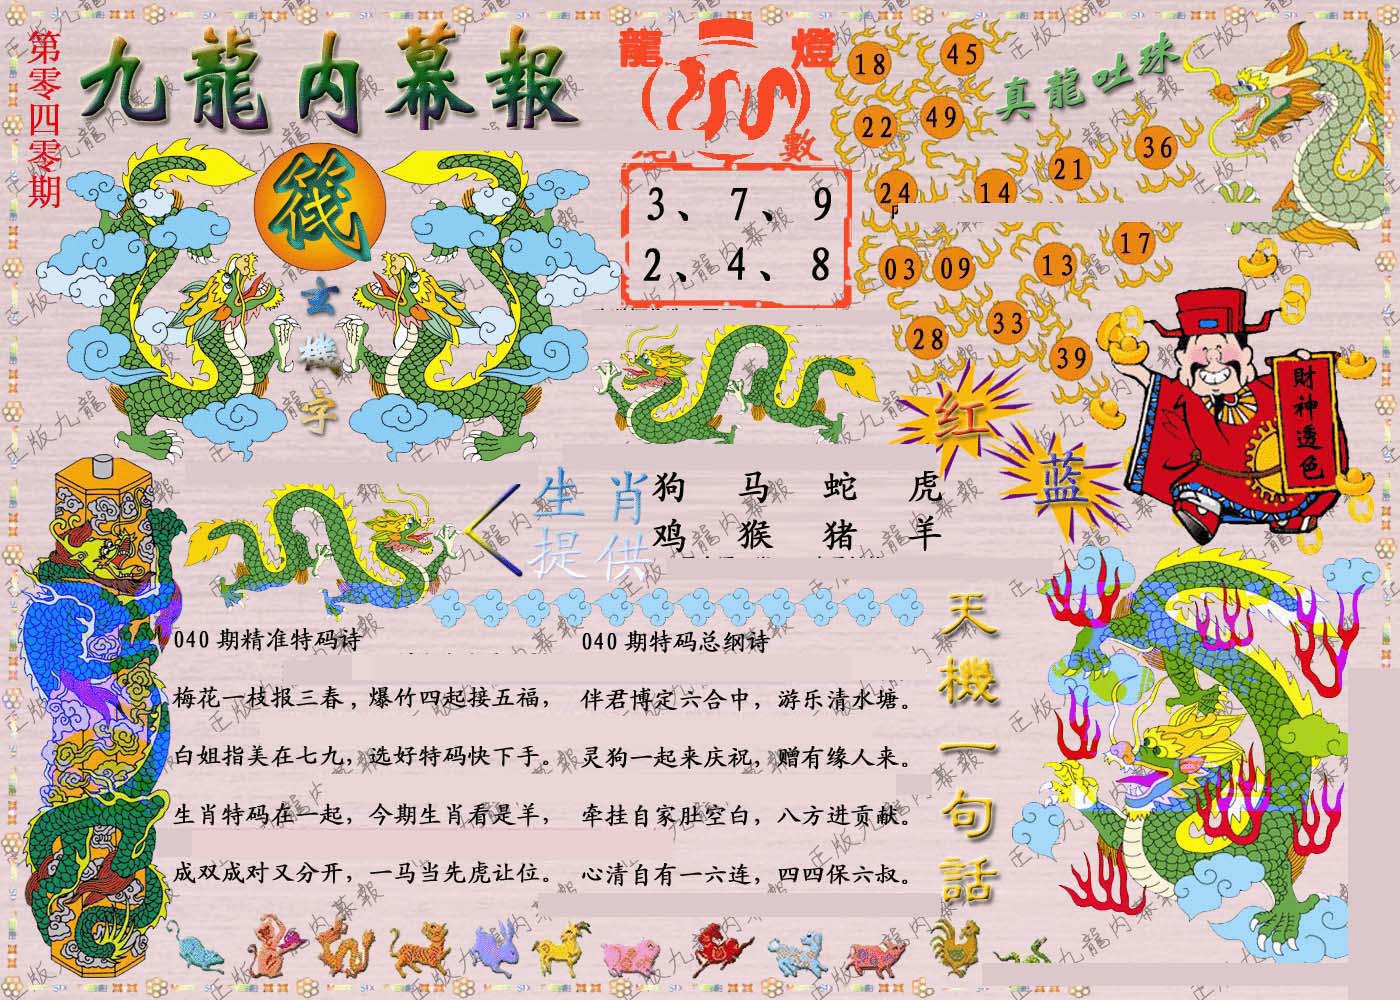 第零四零期
九龍内幕報
龍燈
數
3、7、9
2、4、8
真龍吐珠
18 45
22 49
24 14 21 36
03 09 13 17
28 33 39
玄機字
红
蓝
財神透色
生肖
提供
狗 马 蛇 虎
鸡 猴 猪 羊
040期精准特码诗
梅花一枝报三春,爆竹四起接五福,
白姐指美在七九,选好特码快下手。
生肖特码在一起,今期生肖看是羊,
成双成对又分开,一马当先虎让位。
040期特码总纲诗
伴君博定六合中,游乐清水塘。
灵狗一起来庆祝,赠有缘人来。
牵挂自家肚空白,八方进贡献。
心清自有一六连,四四保六叔。
天機一句話
正版九龍内幕報